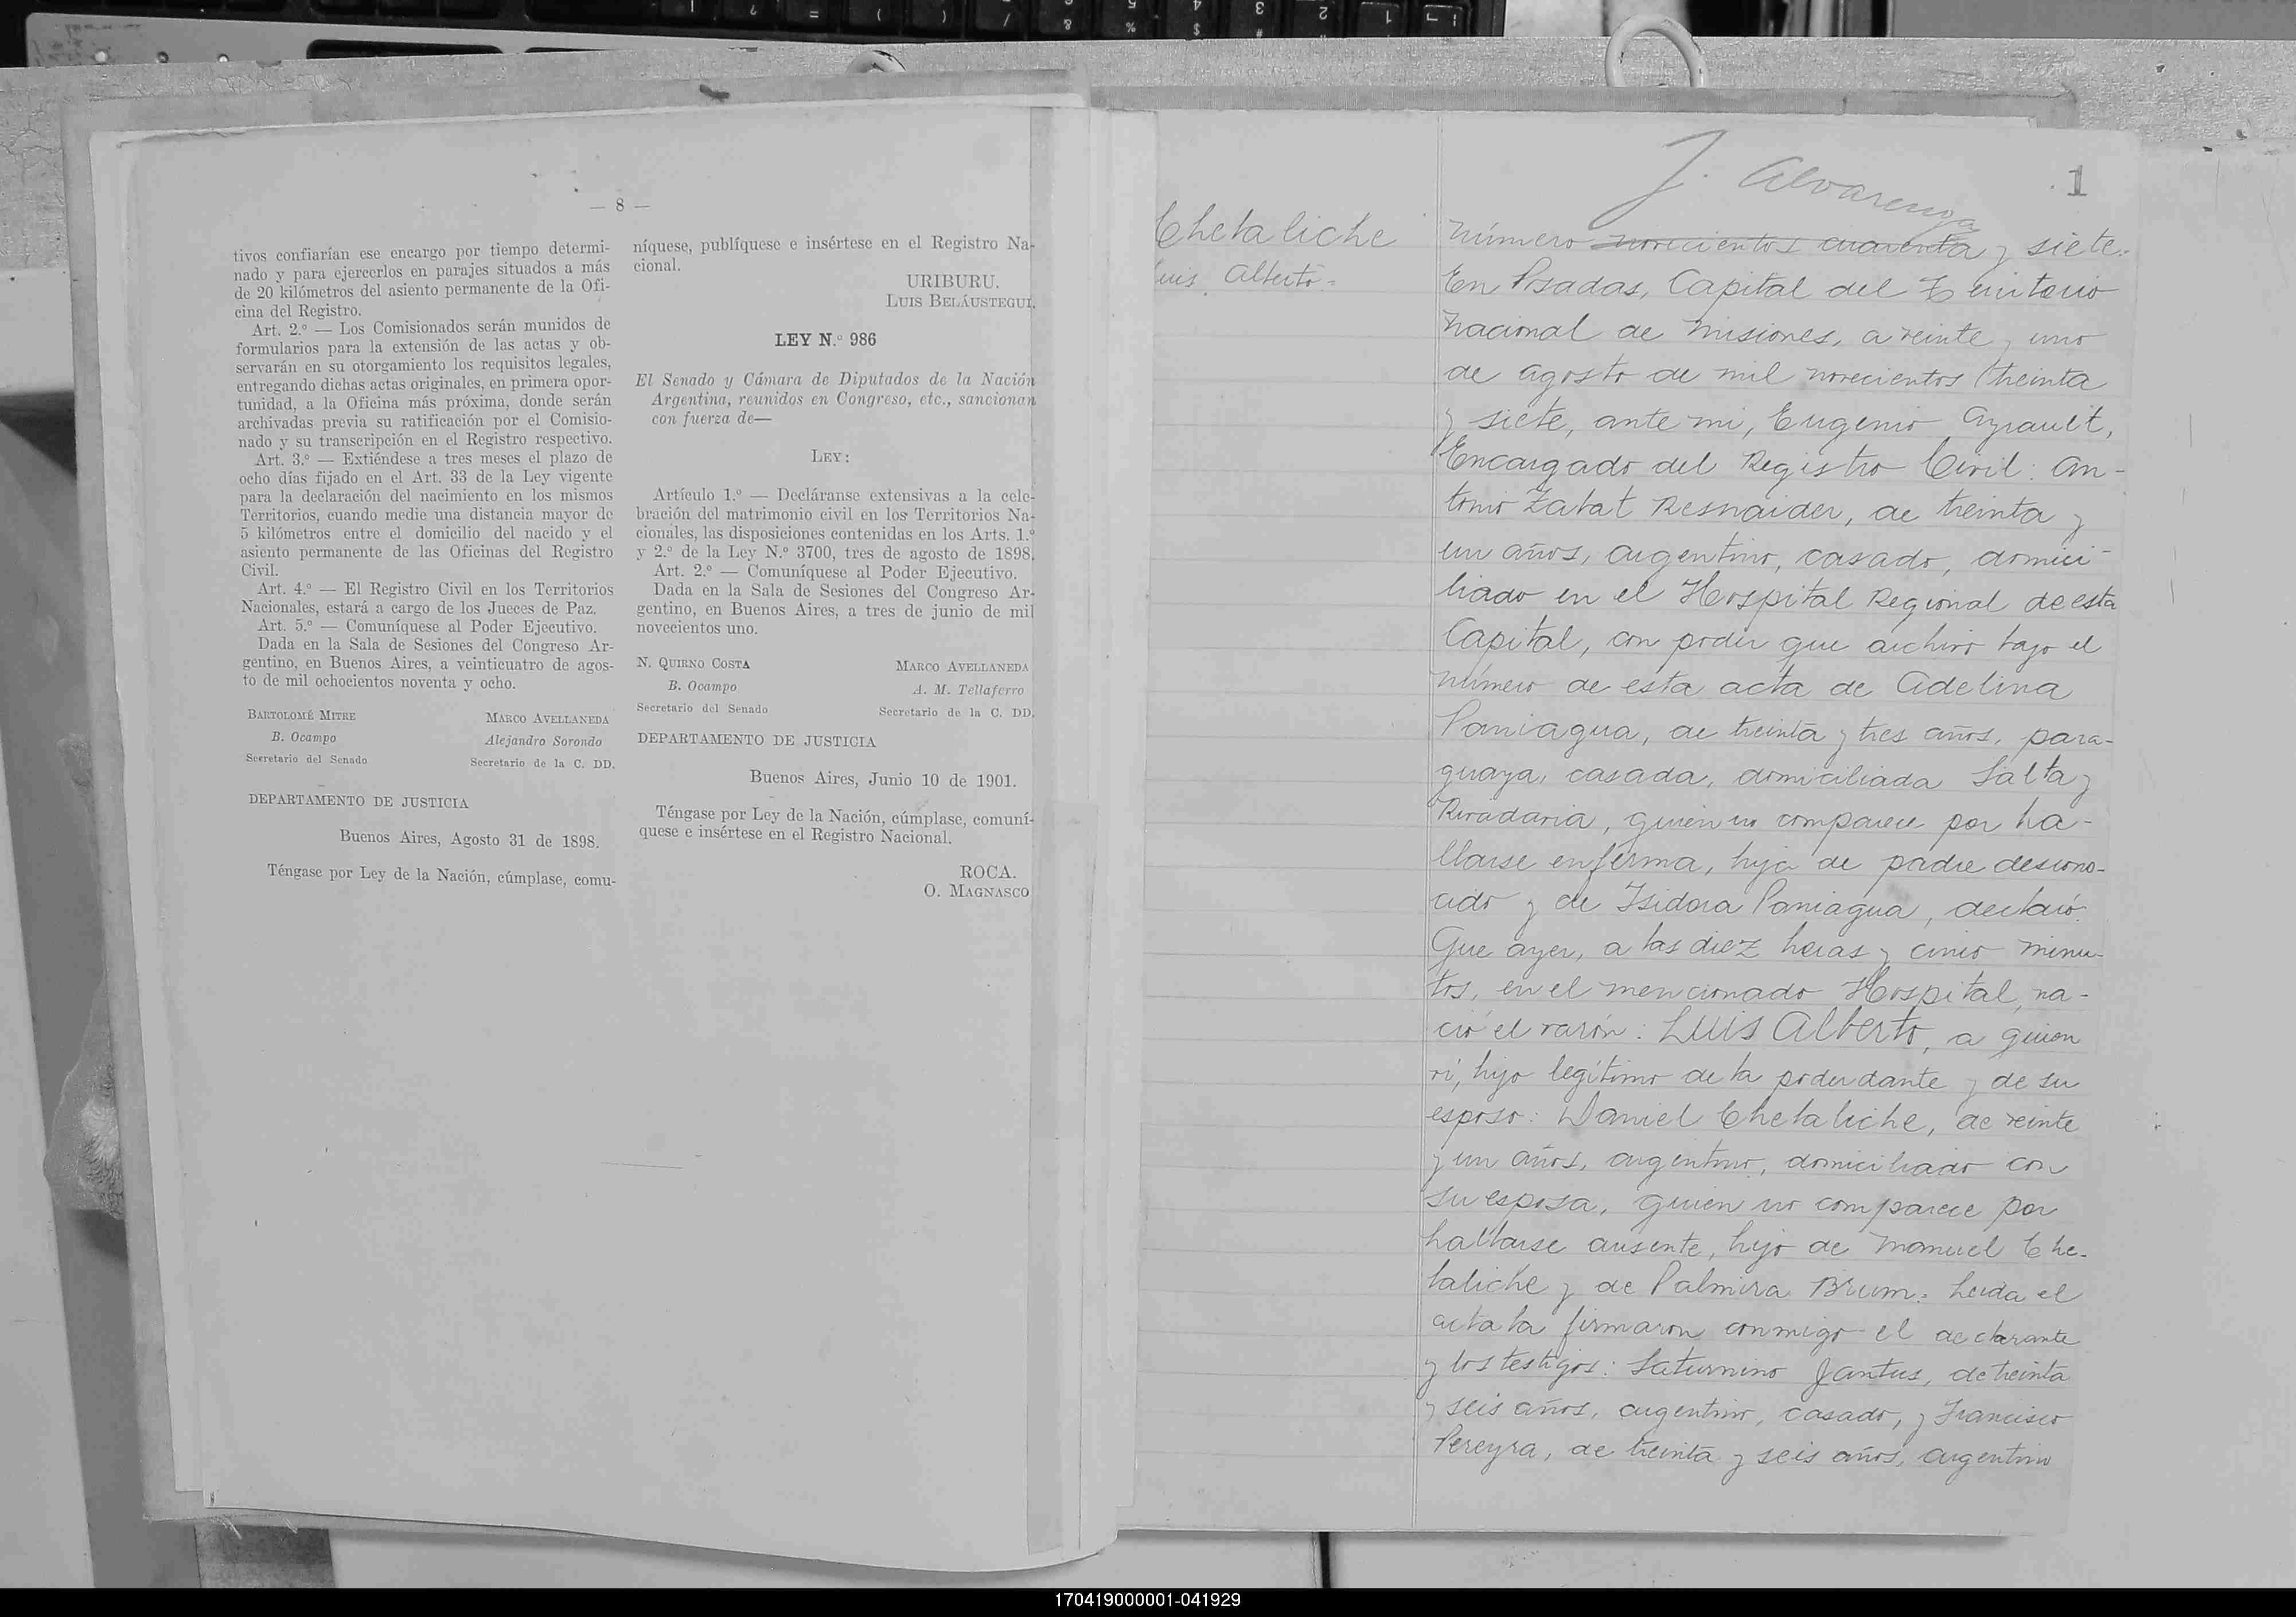 — 8 —
tivos confiarían ese encargo por tiempo determi-
nado y para ejercerlos en parajes situados a más
de 20 kilómetros del asiento permanente de la Ofi-
cina del Registro.
Art. 2.º — Los Comisionados serán munidos de
formularios para la extensión de las actas y ob-
servarán en su otorgamiento los requisitos legales,
entregando dichas actas originales, en primera opor-
tunidad, a la Oficina más próxima, donde serán
archivadas previa su ratificación por el Comisio-
nado y su transcripción en el Registro respectivo.
Art. 3.º — Extiéndese a tres meses el plazo de
ocho días fijado en el Art. 33 de la Ley vigente
para la declaración del nacimiento en los mismos
Territorios, cuando medie una distancia mayor de
5 kilómetros entre el domicilio del nacido y el
asiento permanente de las Oficinas del Registro
Civil.
Art. 4.º — El Registro Civil en los Territorios
Nacionales, estará a cargo de los Jueces de Paz.
Art. 5.º — Comuníquese al Poder Ejecutivo.
Dada en la Sala de Sesiones del Congreso Ar-
gentino, en Buenos Aires, a veinticuatro de agos-
to de mil ochocientos noventa y ocho.
BARTOLOMÉ MITRE MARCO AVELLANEDA
B. Ocampo Alejandro Sorondo
Secretario del Senado Secretario de la C. DD.
DEPARTAMENTO DE JUSTICIA
Buenos Aires, Agosto 31 de 1898.
Téngase por Ley de la Nación, cúmplase, comu-
níquese, publíquese e insértese en el Registro Na-
cional.
URIBURU.
LUIS BELÁUSTEGUI.
LEY N.º 986
El Senado y Cámara de Diputados de la Nación
Argentina, reunidos en Congreso, etc., sancionan
con fuerza de—
LEY:
Artículo 1.º — Decláranse extensivas a la cele-
bración del matrimonio civil en los Territorios Na-
cionales, las disposiciones contenidas en los Arts. 1.º
y 2.º de la Ley N.º 3700, tres de agosto de 1898.
Art. 2.º — Comuníquese al Poder Ejecutivo.
Dada en la Sala de Sesiones del Congreso Ar-
gentino, en Buenos Aires, a tres de junio de mil
novecientos uno.
N. QUIRNO COSTA MARCO AVELLANEDA
B. Ocampo A. M. Tellaferro
Secretario del Senado Secretario de la C. DD.
DEPARTAMENTO DE JUSTICIA
Buenos Aires, Junio 10 de 1901.
Téngase por Ley de la Nación, cúmplase, comuní-
quese e insértese en el Registro Nacional.
ROCA.
O. MAGNASCO
J. Alvarenga
1
Chetaliche
Luis Alberto=
Número novecientos cuarenta y siete.
En Posadas, Capital del Territorio
Nacional de Misiones, a veinte y uno
de Agosto de mil novecientos treinta
y siete, ante mi, Eugenio Ayrault,
Encargado del Registro Civil: An-
tonio Zabat Resnaider, de treinta y
un años, argentino, casado, domici-
liado en el Hospital Regional de esta
Capital, con poder que archivo bajo el
número de esta acta de Adelina
Paniagua, de treinta y tres años, para-
guaya, casada, domiciliada Salta y
Rivadavia, quien no comparece por ha-
llarse enferma, hija de padre descono-
cido y de Isidora Paniagua, declaró:
Que ayer, a las diez horas y cinco minu-
tos, en el mencionado Hospital, na-
ció el varón: Luis Alberto, a quien
vi, hijo legítimo de la poderdante y de su
esposo: Daniel Chetaliche, de veinte
y un años, argentino, domiciliado con
su esposa, quien no comparece por
hallarse ausente, hijo de Manuel Che-
taliche y de Palmira Brum= Leida el
acta la firmaron conmigo el declarante
y los testigos: Saturnino Jantus, de treinta
y seis años, argentino, casado, y Francisco
Pereyra, de treinta y seis años, argentino
170419000001-041929